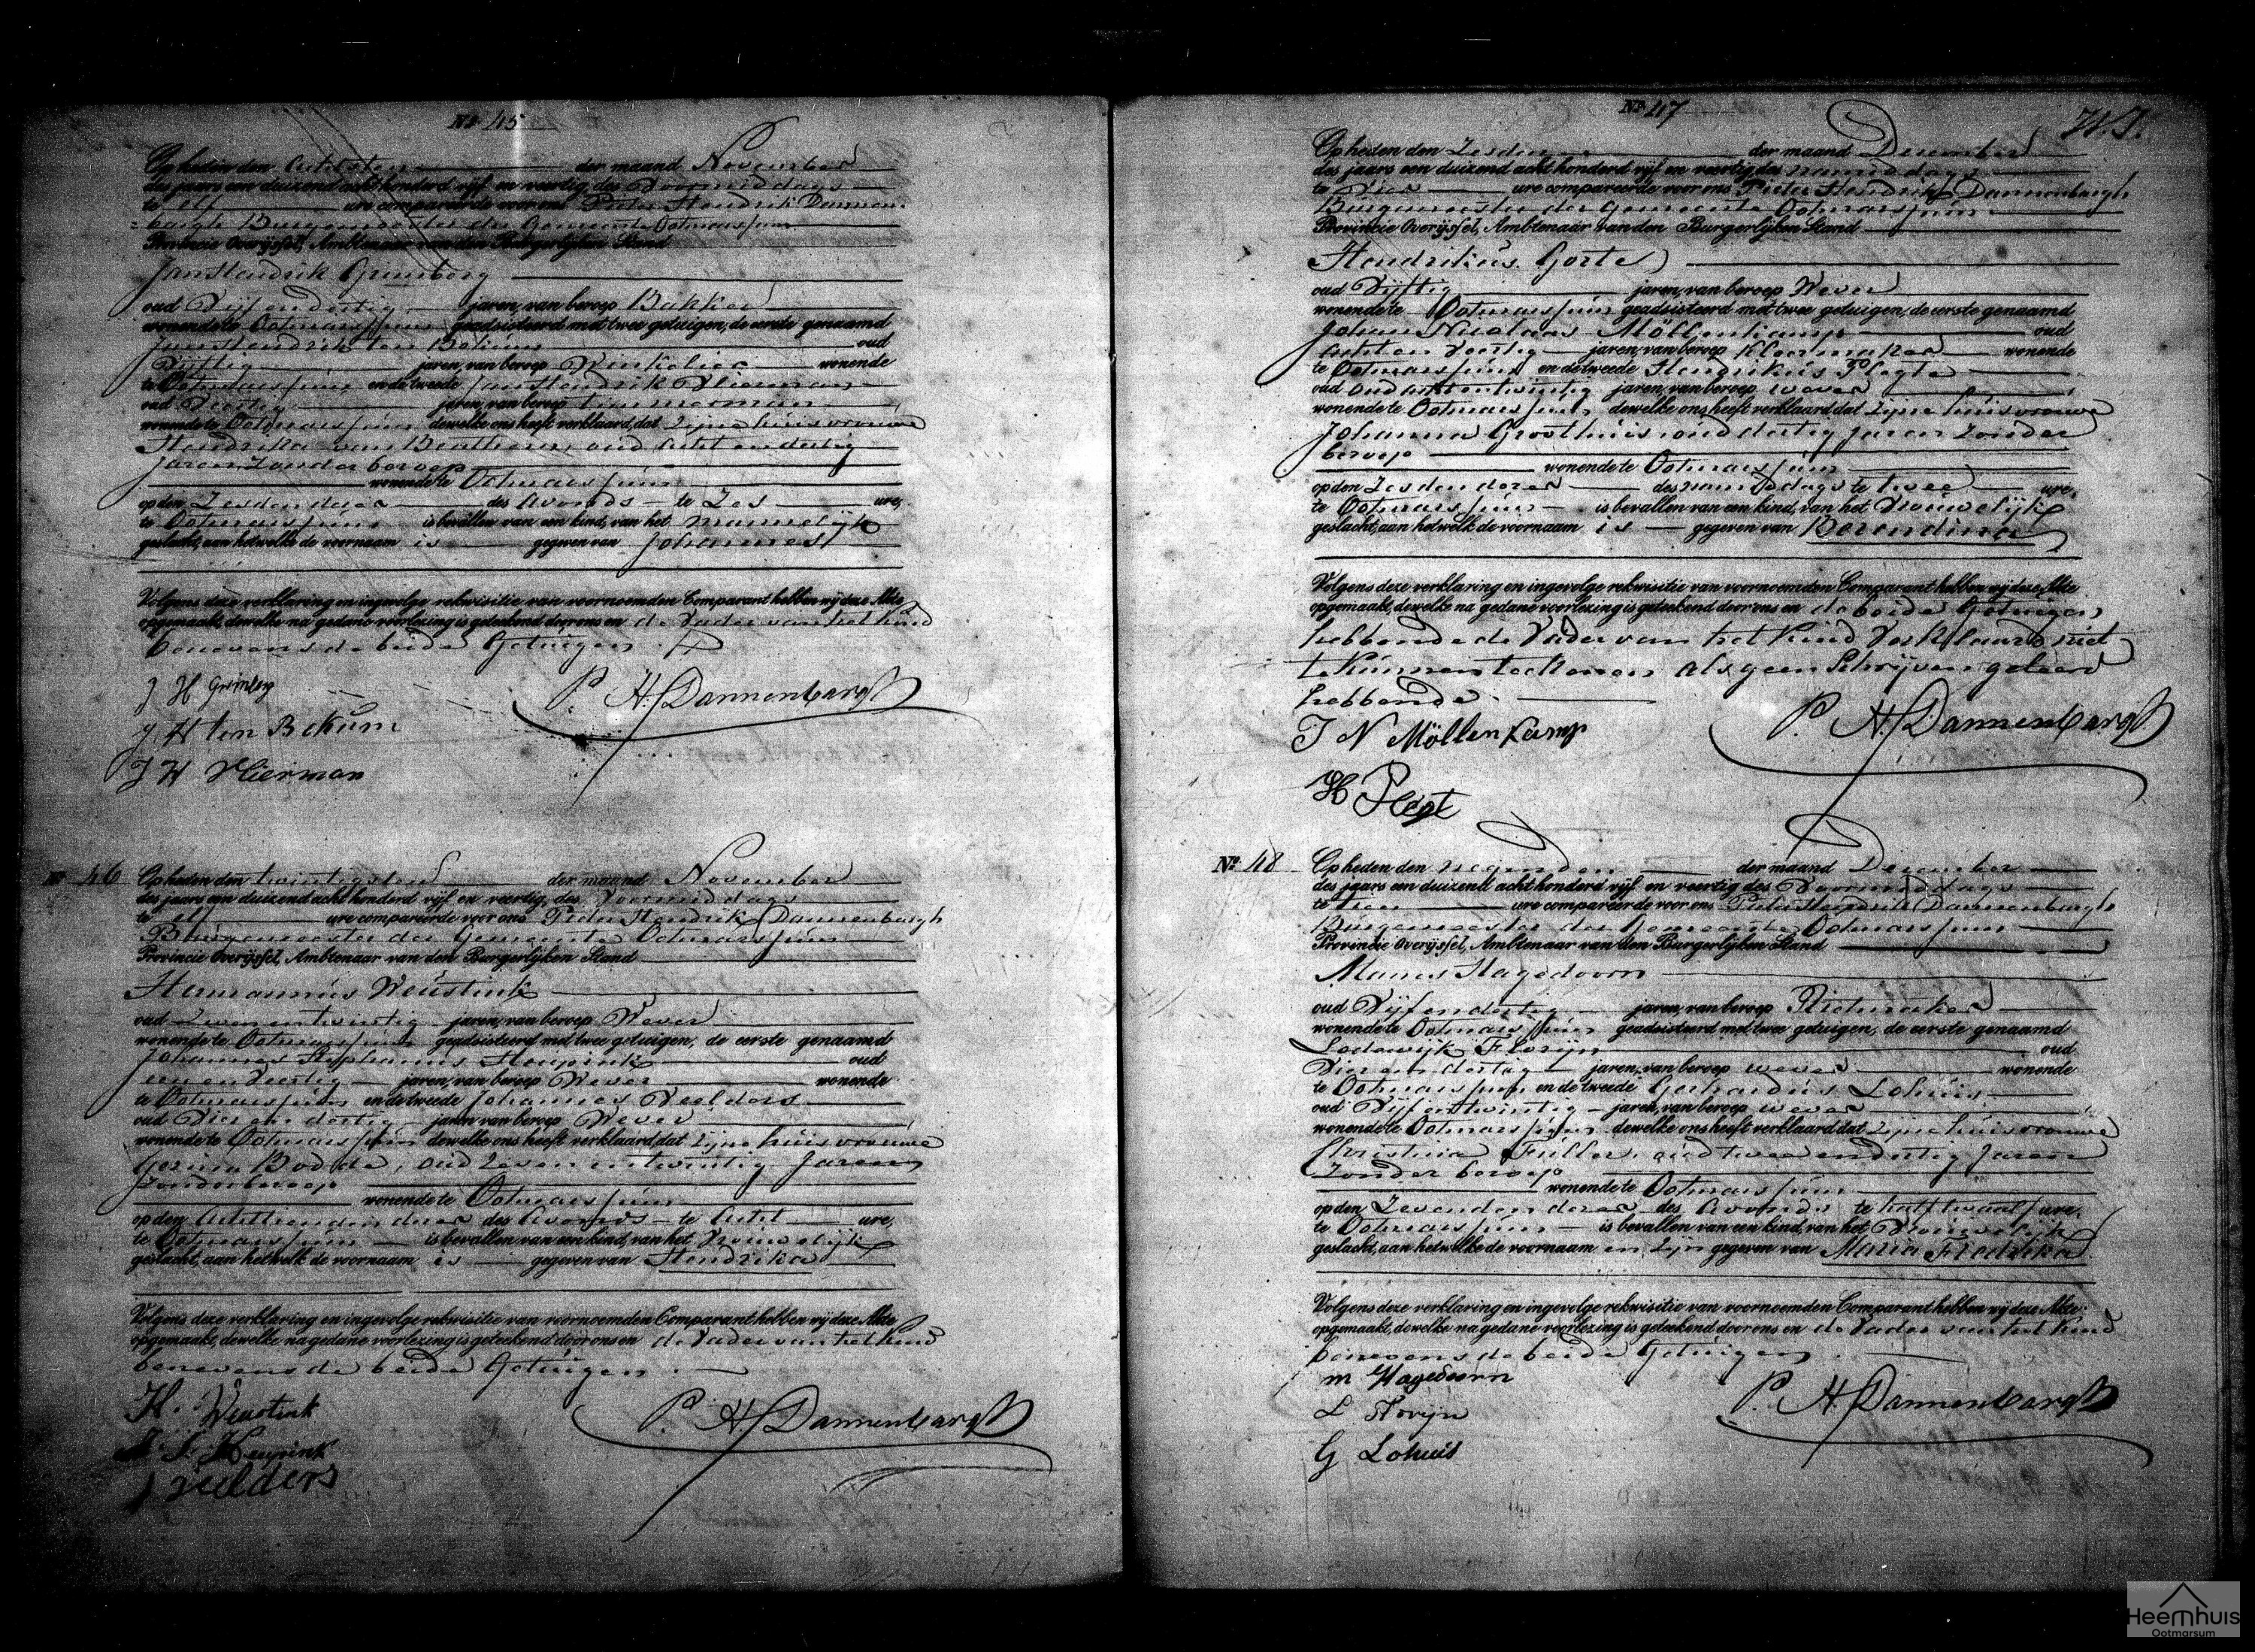 No 45
Op heden den Achtsten der maand November
des jaars een duizend acht honderd vijf en veertig, des Voormiddags
te elf ure compareerde voor ons Pieter Hendrik Dannen-
bargh Burgemeester der Gemeente Ootmarssum
Provincie Overijssel, Ambtenaar van den Burgerlijken Stand
Jan Hendrik Grimberg
oud Vijfendertig jaren, van beroep Bakker
wonende te Ootmarssum geadsisteerd met twee getuigen, de eerste genaamd
Jan Hendrik ten Bokum oud
Vijftig jaren, van beroep Winkelier wonende
te Ootmarssum en de tweede Jan Hendrik Vlierman
oud Veertig jaren, van beroep timmerman
wonende te Ootmarssum dewelke ons heeft verklaard, dat zijne huisvrouwe
Hendrika van Bentheim, oud Acht en dertig
jaren, Zonder beroep
wonende te Ootmarssum
op den Zesden dezer des Avonds te Zes ure,
te Ootmarssum is bevallen van een kind, van het mannelijk
geslacht, aan hetwelk de voornaam is gegeven van Johannes
Volgens deze verklaring en ingevolge rekwisitie van voornoemden Comparant hebben wij deze Akte
opgemaakt, dewelke na gedane voorlezing is geteekend door ons en de Vader van het kind
benevens de beide Getuigen
J H Grimberg
P. H. Dannenbargh
J H ten Bokum
J H Vlierman
No 46 Op heden den twintigsten der maand November
des jaars een duizend acht honderd vijf en veertig, des Voormiddags
te elf ure compareerde voor ons Pieter Hendrik Dannenbargh
Burgemeester der Gemeente Ootmarssum
Provincie Overijssel, Ambtenaar van den Burgerlijken Stand
Hermannus Weustink
oud Zevenentwintig jaren, van beroep Wever
wonende te Ootmarssum geadsisteerd met twee getuigen, de eerste genaamd
Johannes Stephanus Heupink oud
een en Veertig jaren, van beroep Wever wonende
te Ootmarssum en de tweede Johannes Veelders
oud Vier en dertig jaren van beroep Wever
wonende te Ootmarssum dewelke ons heeft verklaard, dat zijne huisvrouwe
Gezina Bodde, oud Zeven en twintig Jaren
Zonder beroep
wonende te Ootmarssum
op den Achttienden dezer des Avonds te Acht ure,
te Ootmarssum is bevallen van een kind, van het Vrouwelijk
geslacht, aan hetwelk de voornaam is gegeven van Hendrika
Volgens deze verklaring en ingevolge rekwisitie van voornoemden Comparant hebben wij deze Akte
opgemaakt, dewelke na gedane voorlezing is geteekend door ons en de Vader van het kind
benevens de beide Getuigen
H. Weustink
P. H. Dannenbargh
J. S. Heupink
J Veelders
No 47
Op heden den Zesden der maand December
des jaars een duizend acht honderd vijf en veertig des namiddags
te Vier ure compareerde voor ons Pieter Hendrik Dannenbargh
Burgemeester der Gemeente Ootmarssum
Provincie Overijssel, Ambtenaar van den Burgerlijken Stand
Hendrikus Gorte
oud Vijftig jaren, van beroep Wever
wonende te Ootmarssum geadsisteerd met twee getuigen, de eerste genaamd
Johan Nicolaas Möllenkamp oud
Acht en Veertig jaren, van beroep Kleermaker wonende
te Ootmarssum en de tweede Hendrikus Plegte
oud oud achtentwintig jaren, van beroep wever
wonende te Ootmarssum dewelke ons heeft verklaard dat Zijne huisvrouwe
Johanna Groothuis, oud dertig jaren Zonder
beroep
wonende te Ootmarssum
op den Zesden dezer des namiddags te twee ure,
te Ootmarssum is bevallen van een kind, van het Vrouwelijk
geslacht, aan hetwelk de voornaam is gegeven van Berendina
Volgens deze verklaring en ingevolge rekwisitie van voornoemden Comparant hebben wij deze Akte
opgemaakt, dewelke na gedane voorlezing is geteekend door ons en de beide Getuigen
hebbende de Vader van het Kind Verklaard niet
te Kunnen teekenen als geen Schrijven geleerd
hebbende
J N Möllenkamp
P. H. Dannenbargh
H Plegt
No 48 Op heden den negenden der maand December
des jaars een duizend acht honderd vijf en veertig des Voormiddags
te ure compareerde voor ons Pieter Hendrik Dannenbargh
Burgemeester der Gemeente Ootmarssum
Provincie Overijssel, Ambtenaar van den Burgerlijken Stand
Manus Hagedoorn
oud Vijfendertig jaren, van beroep Rietmaker
wonende te Ootmarssum geadsisteerd met twee getuigen, de eerste genaamd
Lodewijk Florijn oud
Vier en dertig jaren, van beroep wever wonende
te Ootmarssum en de tweede Gerhardus Lohuis
oud Vijfentwintig jaren, van beroep wever
wonende te Ootmarssum dewelke ons heeft verklaard dat zijne huisvrouwe
Christina Füller, oud twee en dertig Jaren
Zonder beroep
wonende te Ootmarssum
op den Zevenden dezer des Avonds te half twaalf ure,
te Ootmarssum is bevallen van een kind, van het Vrouwelijk
geslacht, aan hetwelk de voornaam en Zijn gegeven van Maria Fredrika
Volgens deze verklaring en ingevolge rekwisitie van voornoemden Comparant hebben wij deze Akte
opgemaakt, dewelke na gedane voorlezing is geteekend door ons en de Vader van het Kind
benevens de beide Getuigen
m Hagedoorn
P. H. Dannenbargh
L Florijn
G Lohuis
Heemhuis
Ootmarsum